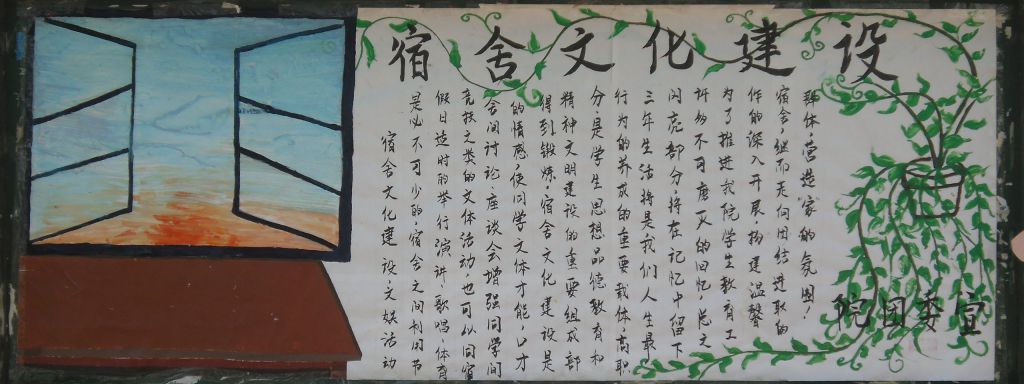 宿舍文化建设
宿舍文化建设、文娱活动
是必不可少的,宿舍之间利用节
假日适时的举行演讲、歌唱、体育
竞技之类的文体活动,也可以同宿
舍间讨论、座谈会增强同学间
的情感,使同学文体才能,口才
得到锻炼。宿舍文化建设是
精神文明建设的重要组成部
分,是学生思想品德教育和
行为的养成的重要载体,高职
三年生活将是我们人生最
闪亮部分,将在记忆中留下
许多不可磨灭的回忆,总之
为了推进我院学生教育工
作的深入开展,构建温馨
宿舍,继而走向团结进取的
群体,营造“家”的氛围!
院团委宣